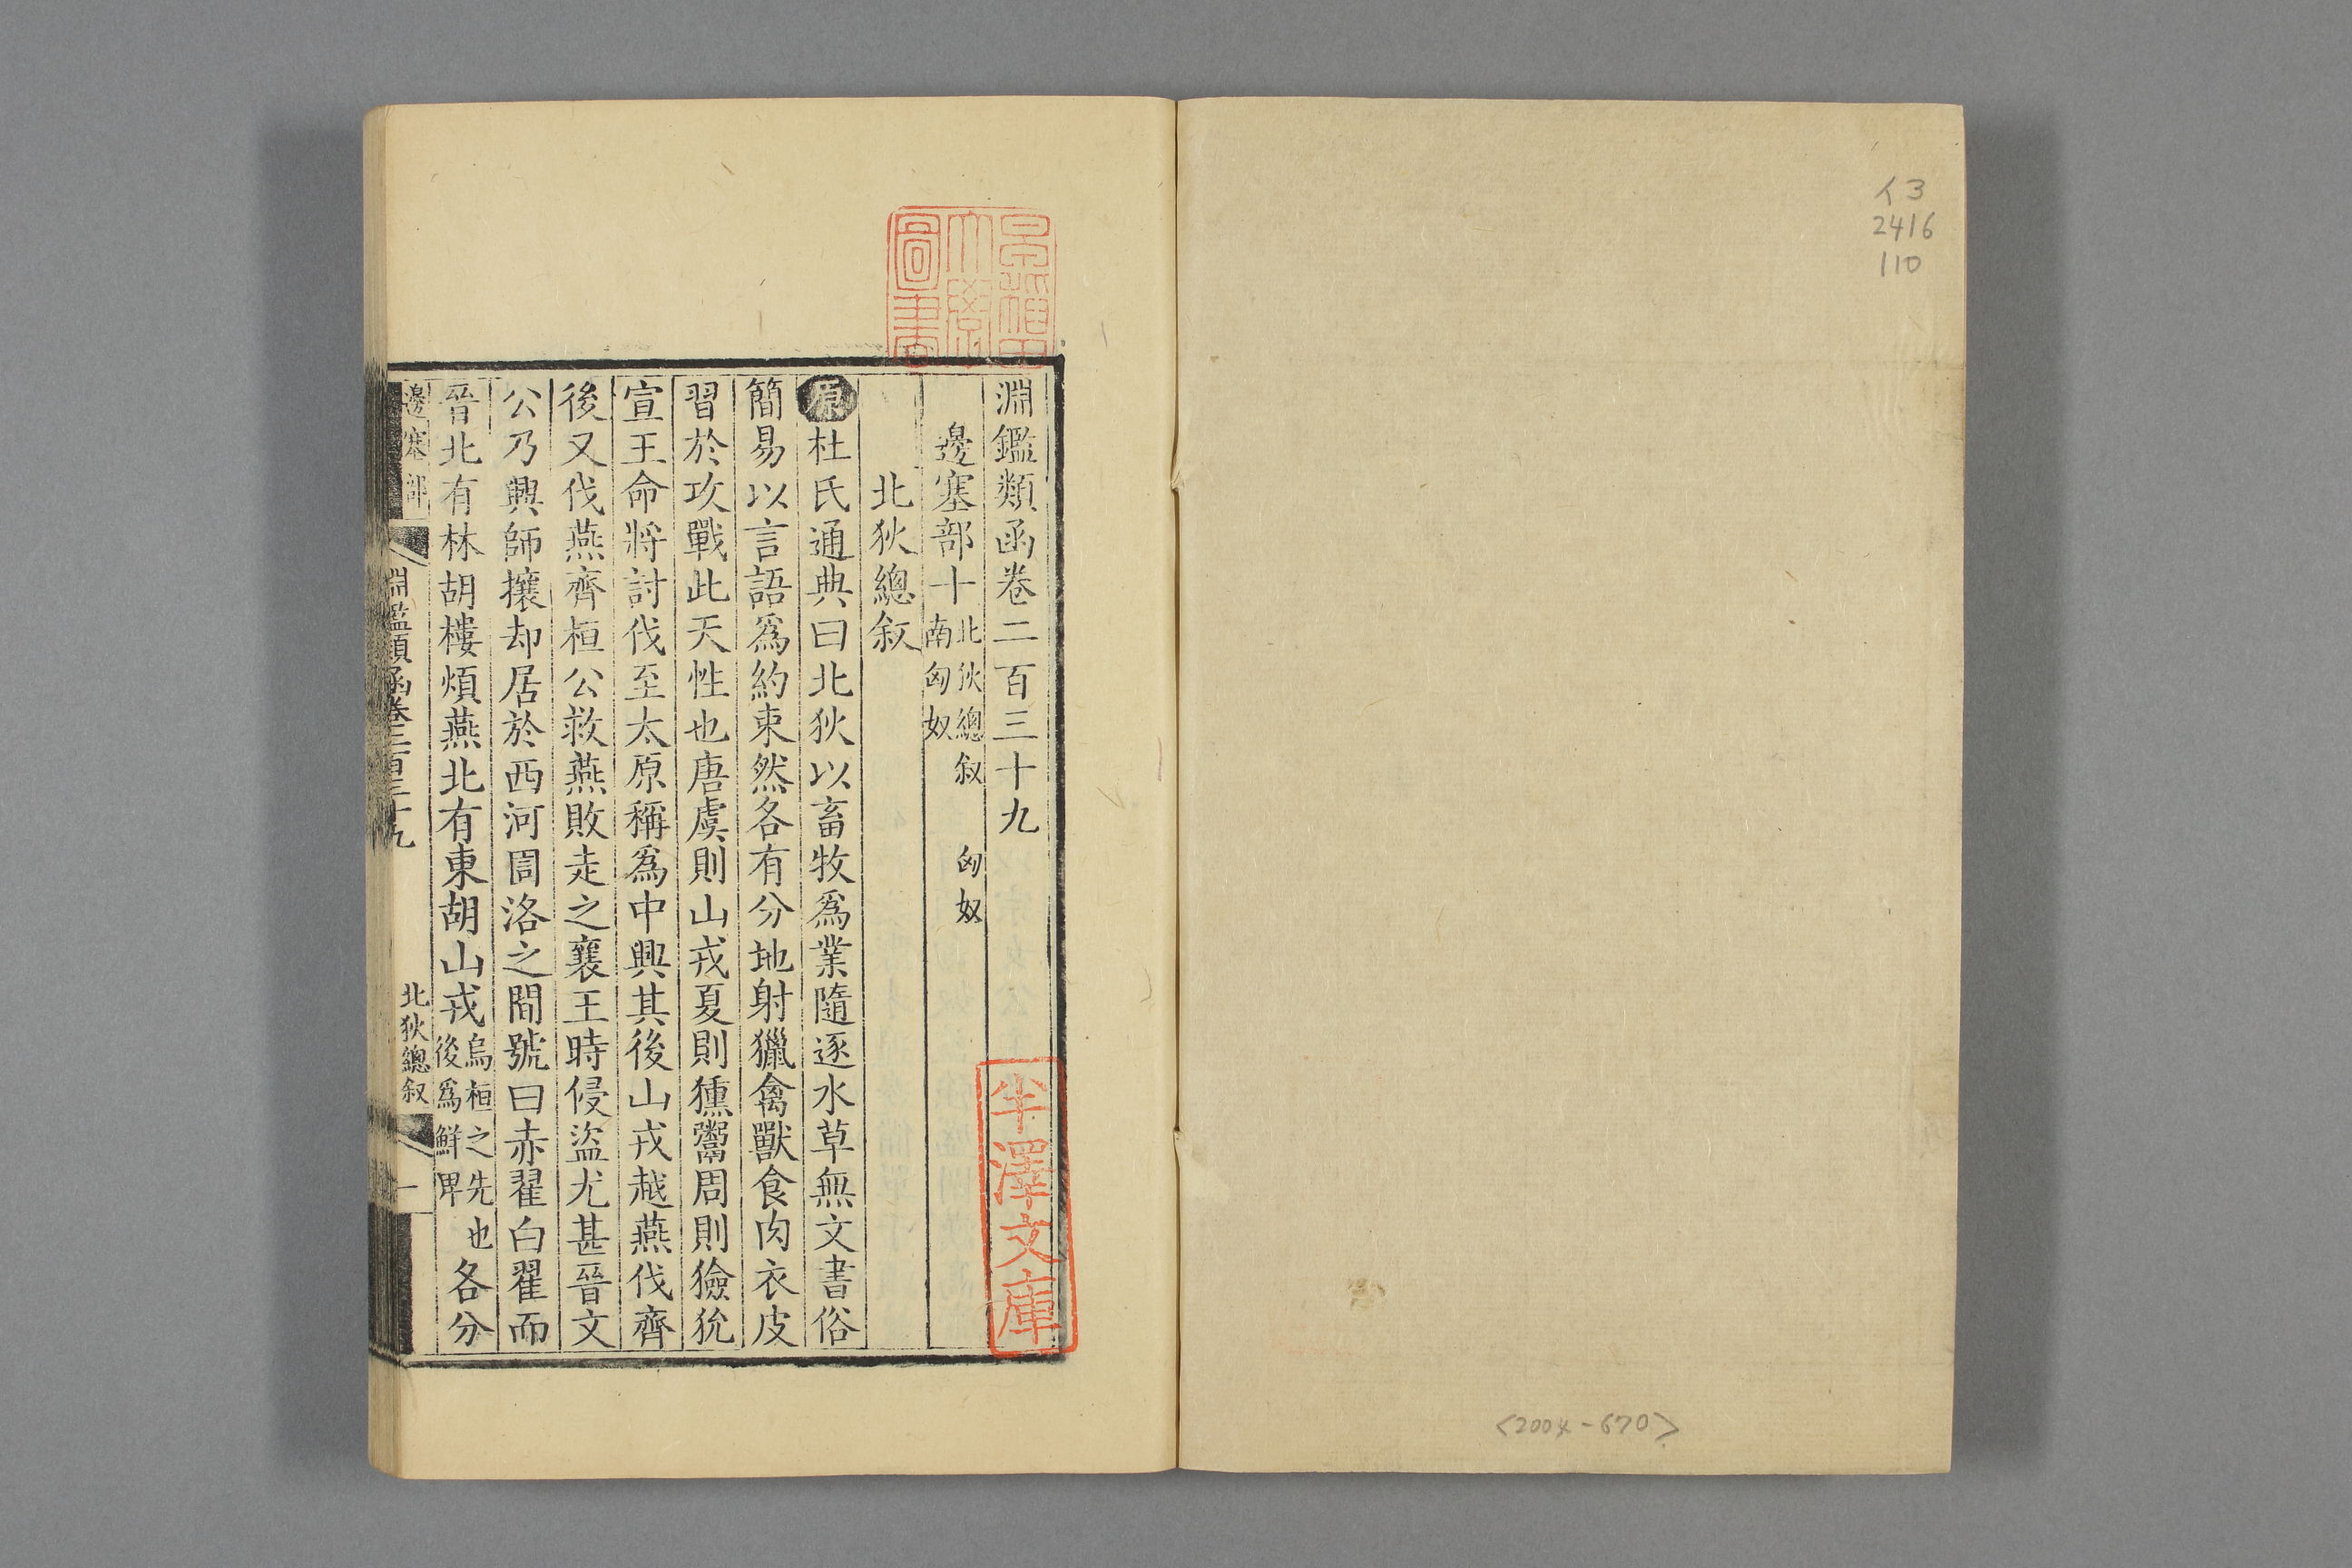 イ3
2416
110
<2004-670>
早稲田
大學
圖書
淵鑑類函卷二百三十九
邊塞部十北狄總叙 匈奴
南匈奴
北狄總叙
原杜氏通典曰北狄以畜牧爲業隨逐水草無文書俗
簡易以言語爲約束然各有分地射獵禽獸食肉衣皮
習於攻戰此天性也唐虞則山戎夏則獯鬻周則獫狁
宣王命將討伐至太原稱爲中興其後山戎越燕伐齊
後又伐燕齊桓公救燕敗走之襄王時侵盜尤甚晉文
公乃興師攘却居於西河圁洛之間號曰赤翟白翟而
晉北有林胡樓煩燕北有東胡山戎烏桓之先也
後爲鮮卑各分
邊塞部
淵鑑類函卷二百三十九
北狄總叙
一
半澤文庫